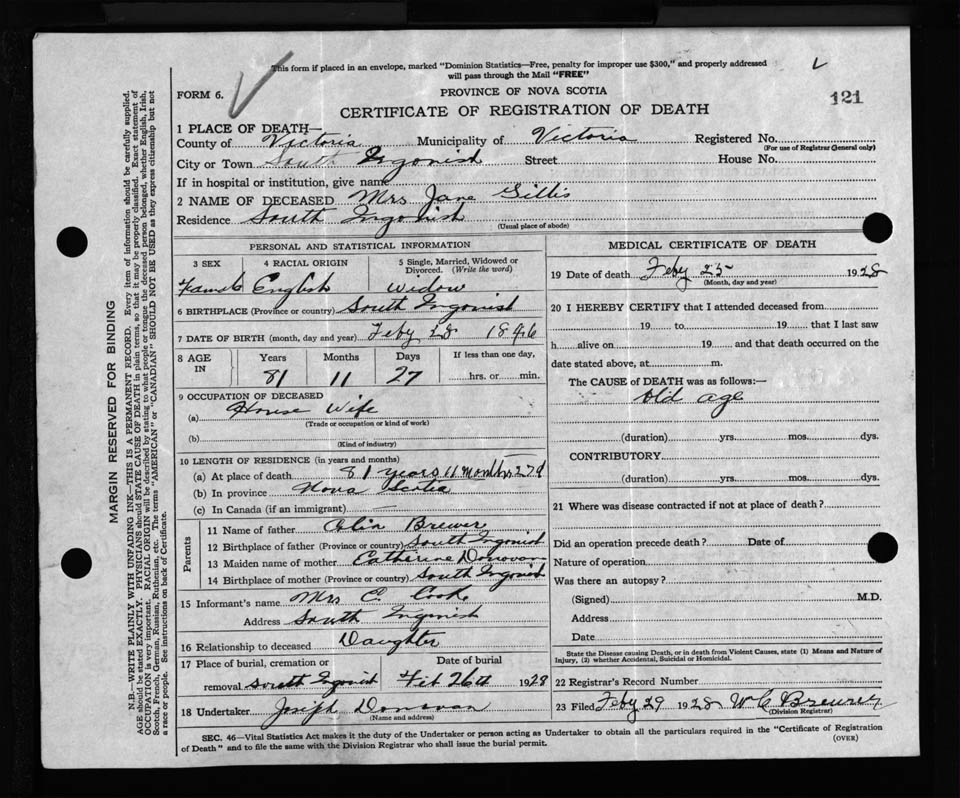 This form if placed in an envelope, marked "Dominion Statistics—Free, penalty for improper use $300," and properly addressed
will pass through the Mail "FREE"
FORM 6.
PROVINCE OF NOVA SCOTIA
121
CERTIFICATE OF REGISTRATION OF DEATH
1 PLACE OF DEATH—
County of Victoria Municipality of Victoria Registered No.
(For use of Registrar General only)
City or Town South Ingonish Street House No.
If in hospital or institution, give name
2 NAME OF DECEASED Mrs Jane Gillis
Residence South Ingonish
(Usual place of abode)
PERSONAL AND STATISTICAL INFORMATION
3 SEX 4 RACIAL ORIGIN 5 Single, Married, Widowed or
Divorced. (Write the word)
Famale English Widow
6 BIRTHPLACE (Province or country) South Ingonish
7 DATE OF BIRTH (month, day and year) Feby 28 1846
8 AGE IN Years Months Days If less than one day,
81 11 27 hrs. or min.
9 OCCUPATION OF DECEASED
(a) House Wife
(Trade or occupation or kind of work)
(b)
(Kind of industry)
10 LENGTH OF RESIDENCE (in years and months)
(a) At place of death 81 years 11 months 27 d
(b) In province Nova Scotia
(c) In Canada (if an immigrant)
Parents
11 Name of father Colin Brewer
12 Birthplace of father (Province or country) South Ingonish
13 Maiden name of mother Catherine Donovan
14 Birthplace of mother (Province or country) South Ingonish
15 Informant's name Mrs C. Cooke
Address South Ingonish
16 Relationship to deceased Daughter
17 Place of burial, cremation or Date of burial
removal South Ingonish Feb 26th 1928
18 Undertaker Joseph Donovan
(Name and address)
MEDICAL CERTIFICATE OF DEATH
19 Date of death Feby 25 1928
(Month, day and year)
20 I HEREBY CERTIFY that I attended deceased from
19 to 19 that I last saw
h alive on 19 and that death occurred on the
date stated above, at m.
The CAUSE of DEATH was as follows:—
Old age
(duration) yrs. mos. dys.
CONTRIBUTORY
(duration) yrs. mos. dys.
21 Where was disease contracted if not at place of death?
Did an operation precede death? Date of
Nature of operation
Was there an autopsy?
(Signed) M.D.
Address
Date
State the Disease causing Death, or in death from Violent Causes, state (1) Means and Nature of
Injury, (2) whether Accidental, Suicidal or Homicidal.
22 Registrar's Record Number
23 Filed Feby 29 1928 W C Brewer
(Division Registrar)
SEC. 46—Vital Statistics Act makes it the duty of the Undertaker or person acting as Undertaker to obtain all the particulars required in the "Certificate of Registration
of Death" and to file the same with the Division Registrar who shall issue the burial permit.
(OVER)
MARGIN RESERVED FOR BINDING
N.B.—WRITE PLAINLY WITH UNFADING INK—THIS IS A PERMANENT RECORD. Every item of information should be carefully supplied.
AGE should be stated EXACTLY. PHYSICIANS should STATE CAUSE OF DEATH in plain terms, so that it may be properly classified. Exact statement of
OCCUPATION is very important. RACIAL ORIGIN will be described by stating to what people or tongue the deceased person belonged, whether English, Irish,
Scotch, French, German, Russian, Ruthenian, etc. The terms "AMERICAN" or "CANADIAN" SHOULD NOT BE USED as they express citizenship but not
a race or people. See instructions on back of Certificate.